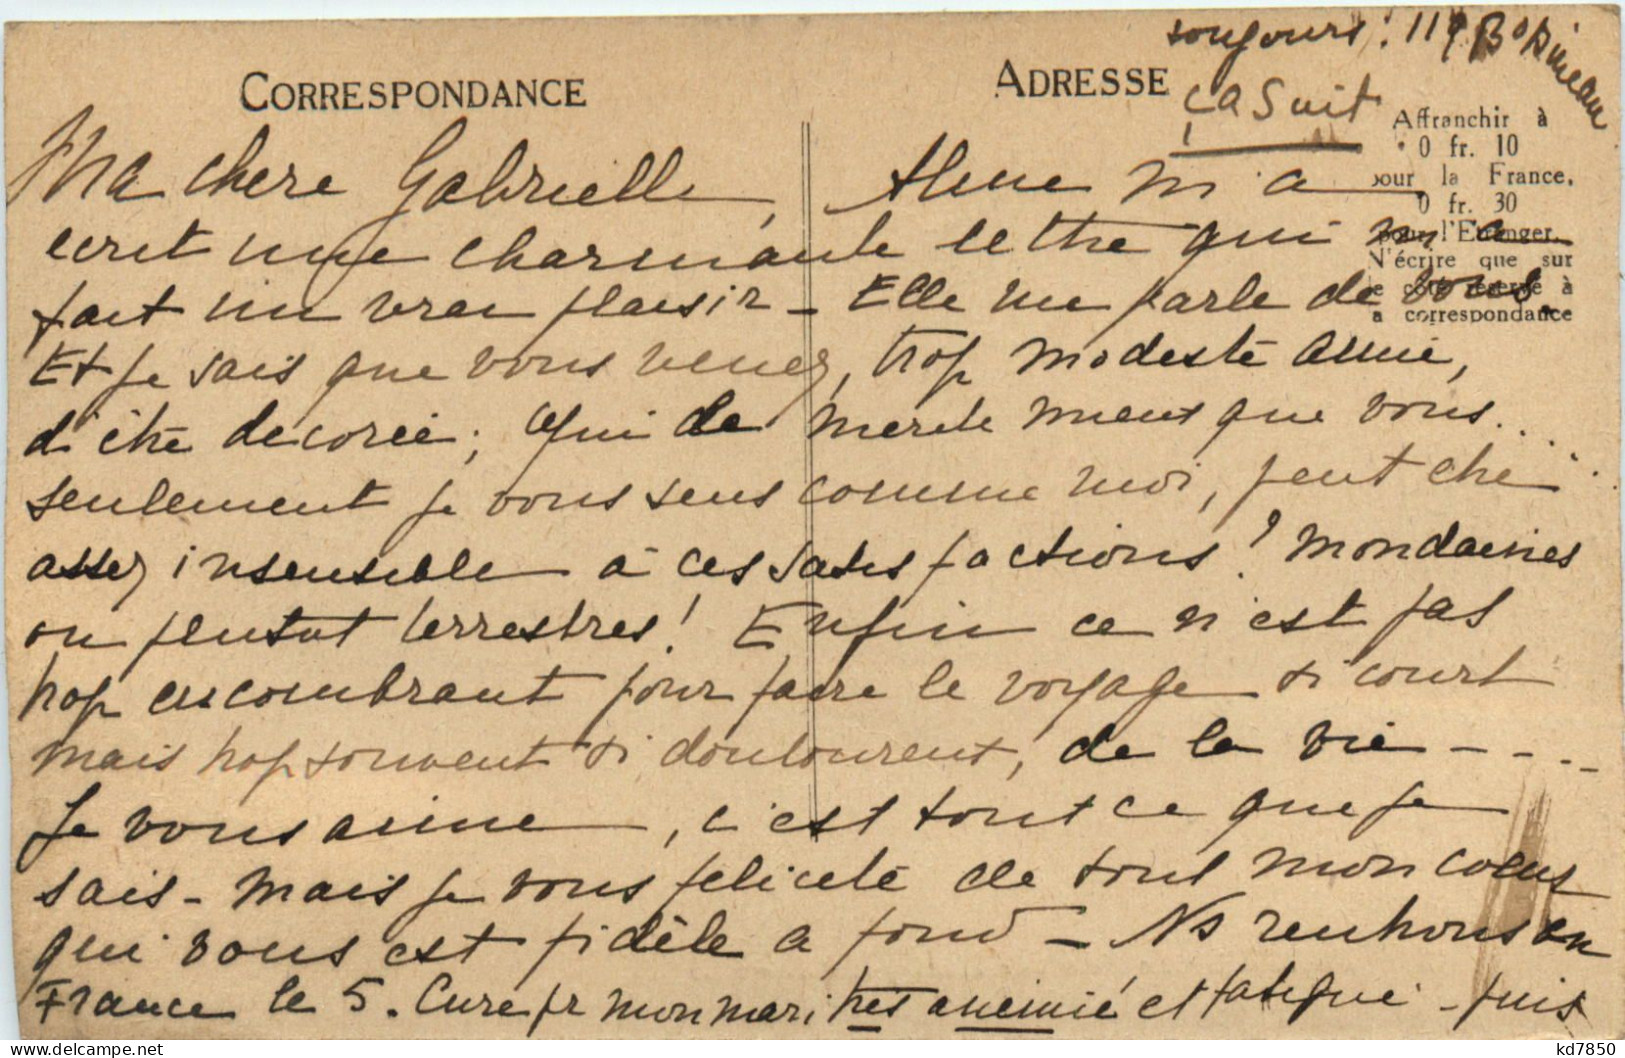 toujours : 119 Bd Bineau
ça suit
CORRESPONDANCE
ADRESSE
Affranchir à
0 fr. 10
pour la France,
0 fr. 30
pour l'Etranger.
N'écrire que sur
le côté réservé à
la correspondance
Ma chere Gabrielle, m'a
ecrit une charmante lettre qui m'a
fait un vrai plaisir - Elle me parle de vous
Et je sais que vous venez, trop modeste amie,
d'être decorée ; qui de merite mieux que vous...
seulement je vous sens comme moi, peut etre
assez insensible à ces satisfactions ! mondaines
ou plutot terrestres ! Enfin ce n'est pas
trop encombrant pour faire le voyage si court
mais trop souvent si douloureux, de la vie - - -
Je vous aime, c'est tout ce que je
sais - mais je vous felicite de tout mon coeur
qui vous est fidèle a fond - Ns rentrons en
France le 5. Cure pr mon mari très anémié et fatigué - puis
kd7850